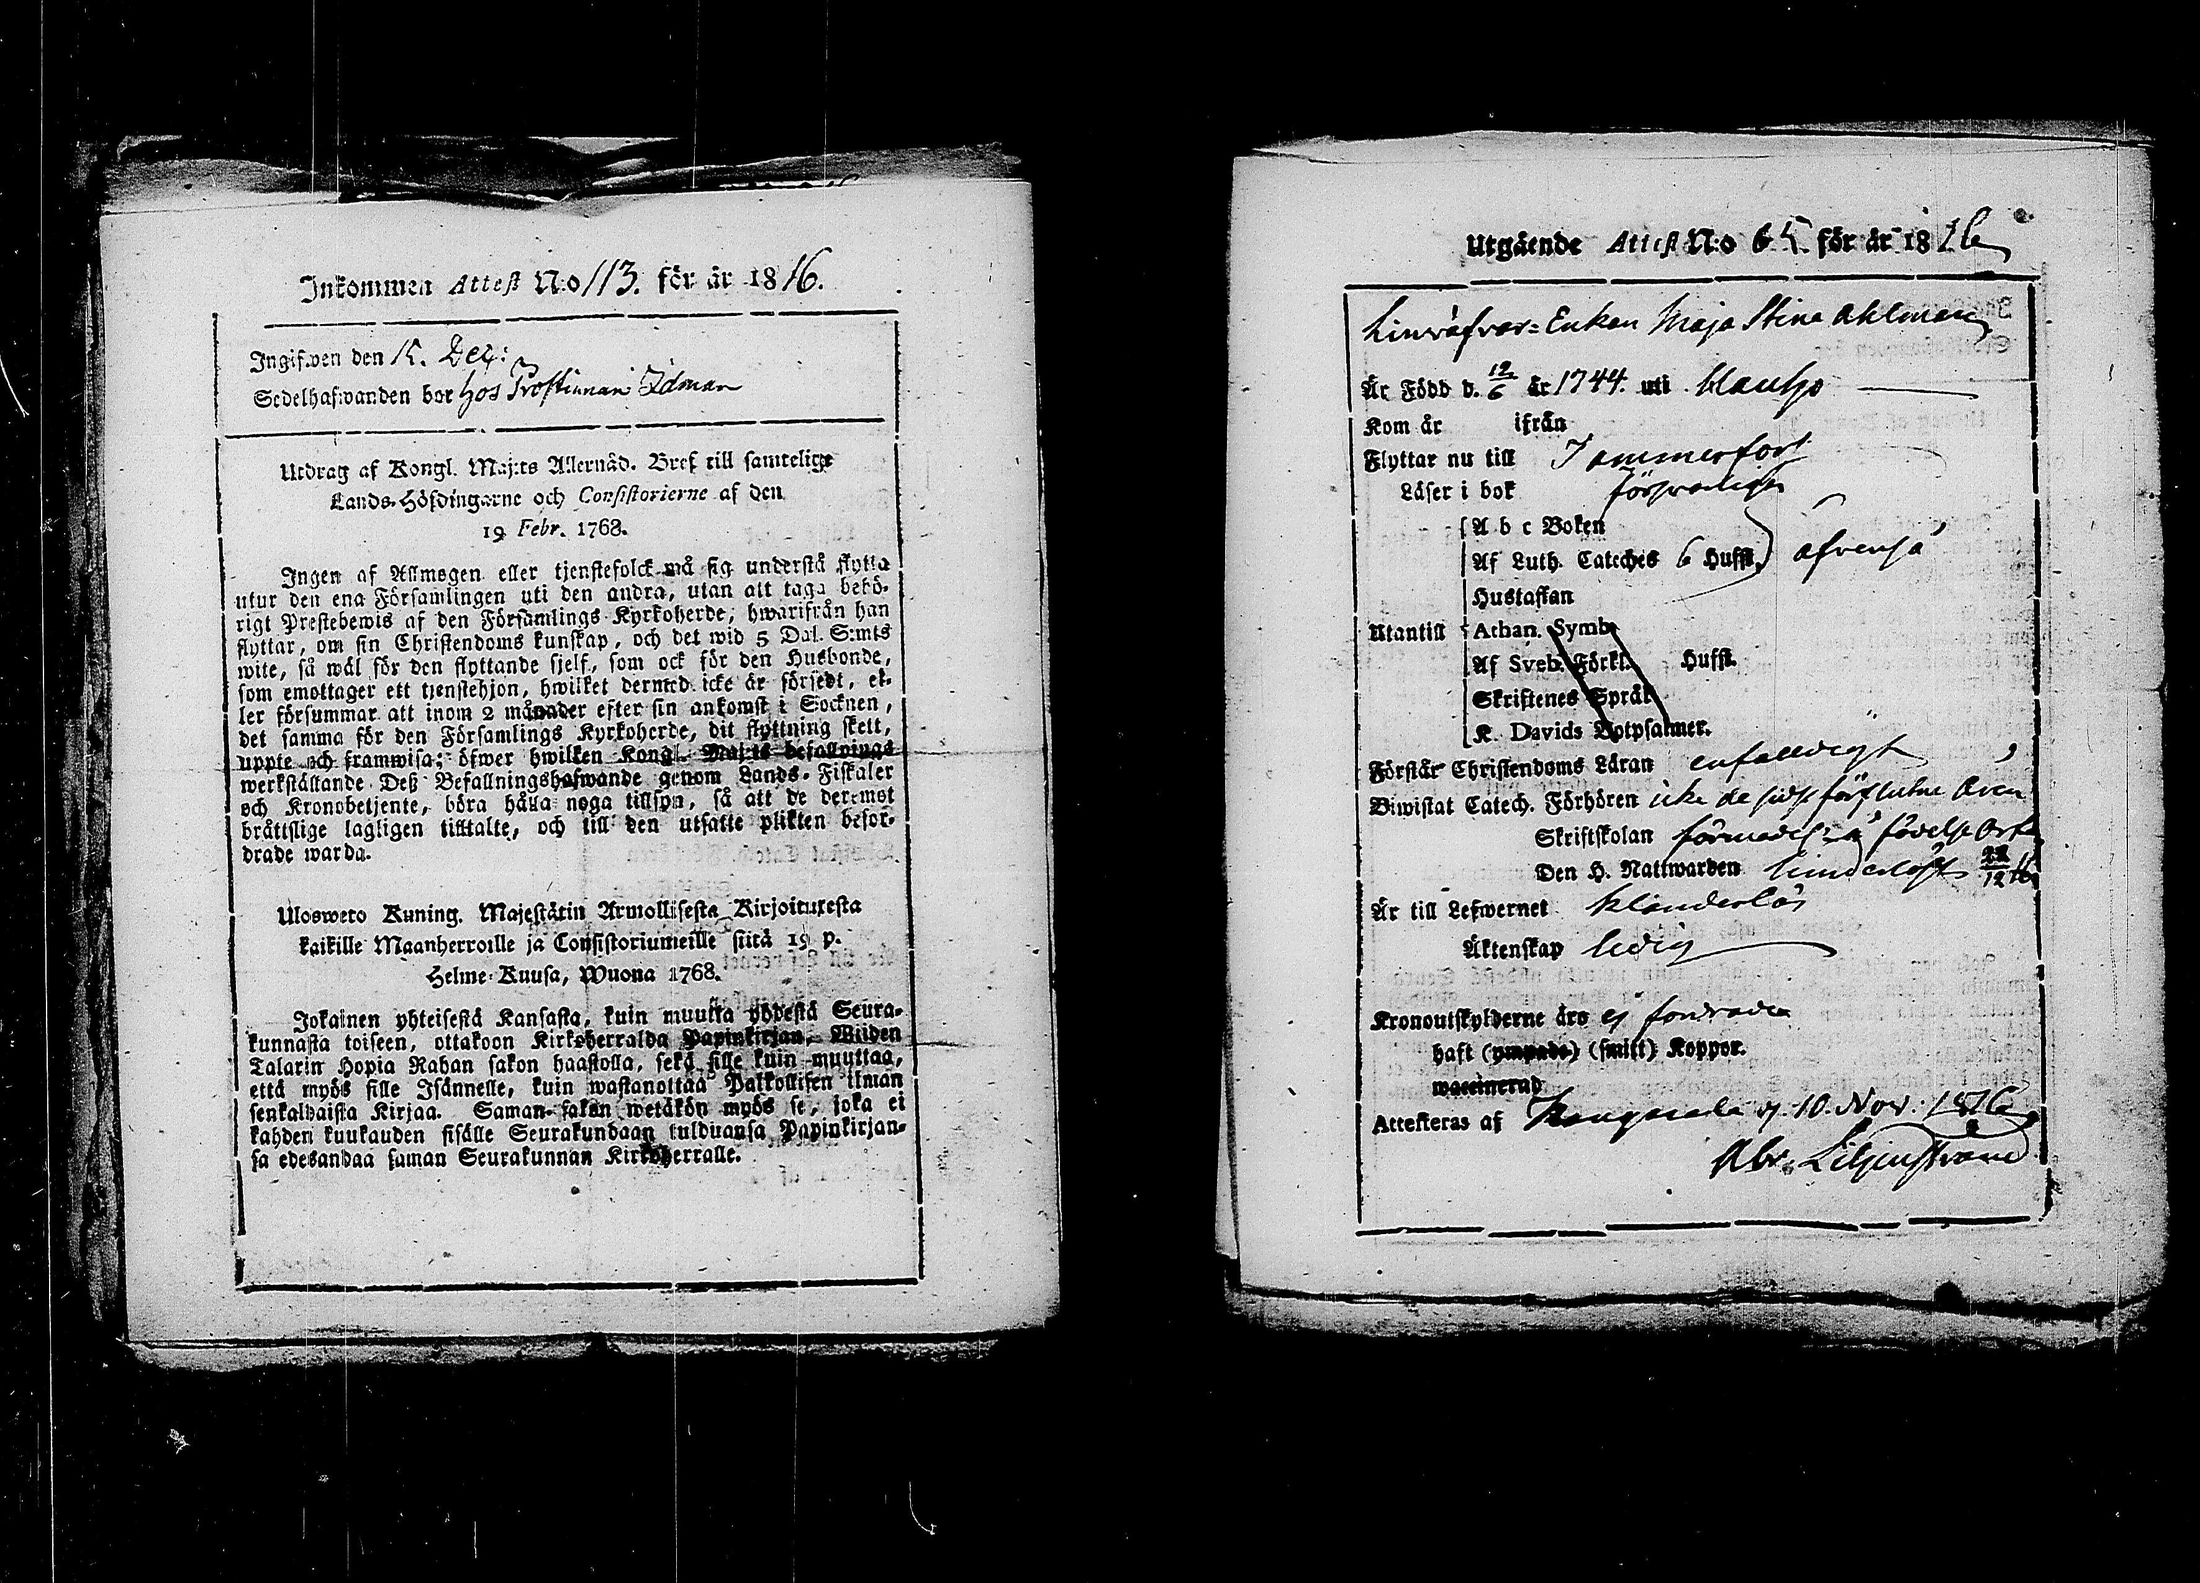 Inkommen Attest N:o 113. för år 1816.
Ingifwen den 15. Dec:
Sedelhafwanden bor hos Prostinnan Idman
Utdrag af Kongl. Maj:ts Allernåd. Bref till samtelige
Lands-Höfdingarne och Consistorierne af den
19 Febr. 1768.
Ingen af Allmogen eller tjenstefolck må sig understå flytta
utur den ena Församlingen uti den andra, utan att taga behö-
rigt Prestebewis af den Församlings Kyrkoherde, hwarifrån han
flyttar, om sin Christendoms kunskap, och det wid 5 Dal. S:mts
wite, så wäl för den flyttande sjelf, som ock för den Husbonde,
som emottager ett tjenstehjon, hwilket dermed icke är försedt, el-
ler försummar att inom 2 månader efter sin ankomst i Socknen,
det samma för den Församlings Kyrkoherde, dit flyttning skett,
uppte och framwisa; öfwer hwilken Kongl. Maj:ts befallnings
werkställande Deß Befallningshafwande genom Lands-Fiskaler
och Kronobetjente, böra hålla noga tillsyn, så att de deremot
bråttslige lagligen tilltalte, och till den utsatte plikten befor-
drade warda.
Ulosweto Kuning. Majestätin Armollisesta Kirjoituxesta
kaikille Maanherroille ja Consistoriumeille siitä 19 p.
Helme-Kuusa, Wuona 1768.
Jokainen yhteisestä Kansasta, kuin muutta yhdestä Seura-
kunnasta toiseen, ottakoon Kirkoherralda Papinkirjan, Wiiden
Talarin Hopia Rahan sakon haastolla, sekä sille kuin muuttaa,
että myös sille Isännelle, kuin wastanottaa Palkollisen ilman
senkaldaista Kirjaa. Saman sakon wetäkön myös se, joka ei
kahden kuukauden sisälle Seurakundaan tulduansa Papinkirjan-
sa edesandaa saman Seurakunnan Kirkoherralle.
Utgående Attest N:o 65. för år 1816
Enkan Maja Stina Ahlman
Är Född d. 12/6 år 1744. uti
Kom år ifrån
Flyttar nu till Tammerfors
Läser i bok försvarligen
A b c Boken
Af Luth. Cateches 6 Hufst. äfvenså
Hustaflan
Utantill Athan. Symb.
Af Sveb. Förkl. Hufst.
Skriftenes Språk
K. Davids Botpsalmer.
Förstår Christendoms Läran enfaldigt
Biwistat Catech. Förhören icke de förflutne åren
Skriftskolan
Den H. Nattwarden
Är till Lefwernet klanderlös
Äktenskap ledig
Kronoutskylderne äro ej fordrade
haft (ympade) (smitt) Koppor.
waccinerad
Attesteras af Kangasala d. 10. Nov: 1816
Abr. Liljenstrand